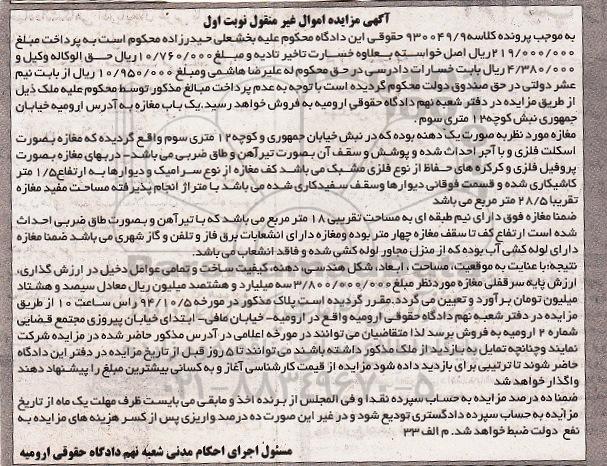 آگهی مزایده اموال غیر منقول نوبت اول
به موجب پرونده کلاسه۹۳۰۰۴۹/۹ حقوقی این دادگاه محکوم علیه بخشعلی حیدرزاده محکوم است به پرداخت مبلغ
۲۱۹/۰۰۰/۰۰۰ریال اصل خواسته بعلاوه خسارت تاخیر تادیه و مبلغ۱۰/۷۶۰/۰۰۰ ریال بابت حق الوکاله وکیل و
۴/۳۸۰/۰۰۰ ریال بابت خسارات دادرسی در حق محکوم له علیرضا هاشمی ومبلغ ۱۰/۹۵۰/۰۰۰ ریال از بابت نیم
عشر دولتی در حق صندوق دولت محکوم گردیده است با توجه به عدم پرداخت مبالغ مذکور توسط محکوم علیه ملک ذیل
از طریق مزایده در دفتر شعبه نهم دادگاه حقوقی ارومیه به فروش خواهد رسید.یک باب مغازه به آدرس ارومیه خیابان
جمهوری نبش کوچه۱۲ متری سوم .
مغازه مورد نظربه صورت یک دهنه بوده که در نبش خیابان جمهوری و کوچه۱۲ متری سوم واقع گردیده که مغازه بصورت
اسکلت فلزی و با آجر احداث شده و پوشش و سقف آن بصورت تیرآهن و طاق ضربی می باشد- دربهای مغازه بصورت
پروفیل فلزی و کرکره های حفاظ از نوع فلزی مشبک می باشد کف مغازه از نوع سرامیک و دیوارها به ارتفاع۱/۵ متر
کاشیکاری شده و قسمت فوقانی دیوارها وسقف سفیدکاری شده می باشد با متراژ انجام پذیرفته مساحت مفید مغازه
تقریبا ۲۸/۵ متر مربع می باشد
ضمنا مغازه فوق دارای نیم طبقه ای به مساحت تقریبی ۱۸ متر مربع می باشد که با تیرآهن و بصورت طاق ضربی احداث
شده است ارتفاع کف تا سقف مغازه چهار متر بوده ومغازه دارای انشعابات برق فاز و تلفن و گاز شهری می باشد ضمنا مغازه
دارای لوله کشی آب بوده که از منزل مجاور لوله کشی شده و فاقد انشعاب می باشد.
نتیجه:با عنایت به موقعیت، مساحت ، ابعاد، شکل هندسی، دهنه، کیفیت ساخت و تمامی عوامل دخیل در ارزش گذاری،
ارزش پایه سرقفلی مغازه موردنظر مبلغ۳/۸۰۰/۰۰۰/۰۰۰سه میلیارد و هشتصد میلیون ریال معادل سیصد و هشتاد
میلیون تومان برآورد و تعیین می گردد.مقرر گردیده است پلاک مذکور در مورخه ۹۴/۱۰/۵ راس ساعت ۱۰ از طریق
مزایده در دفتر شعبه نهم دادگاه حقوقی ارومیه واقع در ارومیه- خیابان مافی- ابتدای خیابان پیروزی مجتمع قضایی
شماره ۲ ارومیه به فروش برسد لذا متقاضیان می توانند در مورخه اعلامی در آدرس مذکور حاضر شده در مزایده شرکت
نمایند وچنانچه تمایل به بازدید از ملک مذکور داشته باشند می توانند تا ۵ روز قبل از تاریخ مزایده در دفتر این دادگاه
حاضر شوند تا ترتیبی برای بازدید داده شود مزایده از قیمت کارشناسی آغاز و به کسانی بیشترین مبلغ را پیشنهاد دهند
واگذار خواهد شد
ضمنا ده درصد مزایده به حساب سپرده نقدا و فی المجلس از برنده اخذ و مابقی می بایست ظرف مهلت یک ماه از تاریخ
مزایده به حساب سپرده دادگستری تودیع شود و در غیر این صورت ده درصد واریزی پس از کسر هزینه های مزایده به
نفع دولت ضبط خواهد شد. م الف ۳۳
مسئول اجرای احکام مدنی شعبه نهم دادگاه حقوقی ارومیه
۰۲۱-۸۸۳۴۹۶۷۰-۵